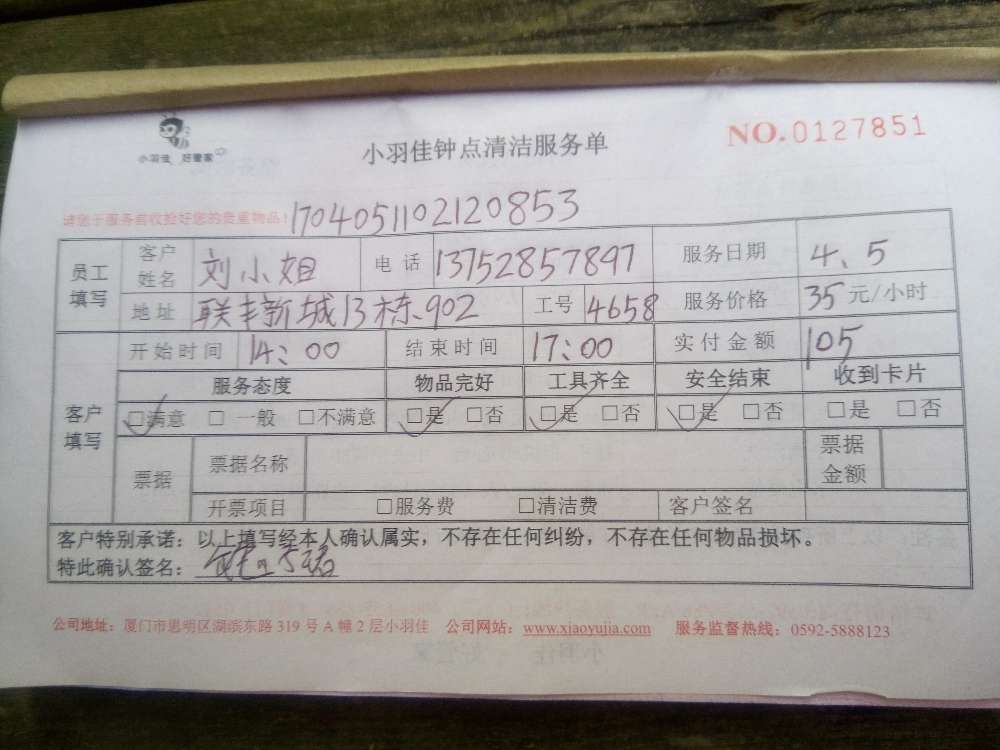 小羽佳 好管家
小羽佳钟点清洁服务单
NO.0127851
请您于服务前收捡好您的贵重物品!
1704051102120853
员工填写 客户姓名 刘小姐 电话 13752857897 服务日期 4、5
地址 联丰新城13栋902 工号 4658 服务价格 35元/小时
客户填写 开始时间 14:00 结束时间 17:00 实付金额 105
服务态度 物品完好 工具齐全 安全结束 收到卡片
☑满意 □一般 □不满意 ☑是 □否 ☑是 □否 ☑是 □否 □是 □否
票据 票据名称 票据金额
开票项目 □服务费 □清洁费 客户签名
客户特别承诺：以上填写经本人确认属实，不存在任何纠纷，不存在任何物品损坏。
特此确认签名：
公司地址：厦门市思明区湖滨东路319号A幢2层小羽佳 公司网站：www.xiaoyujia.com 服务监督热线：0592-5888123